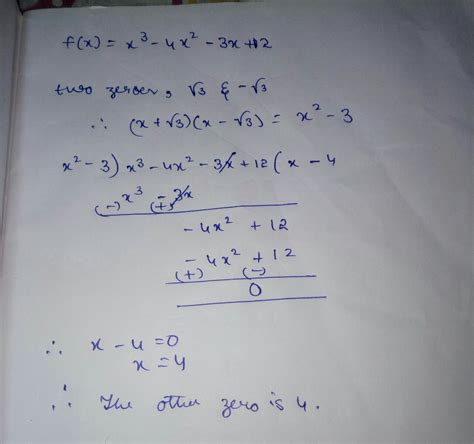 f(x) = x³ - 4x² - 3x + 12
two zeroes, √3 & -√3
∴ (x + √3)(x - √3) = x² - 3
x² - 3) x³ - 4x² - 3x + 12 ( x - 4
x³ - 3x
(-) (+)
- 4x² + 12
- 4x² + 12
(+) (-)
0
∴ x - 4 = 0
x = 4
∴ The other zero is 4.